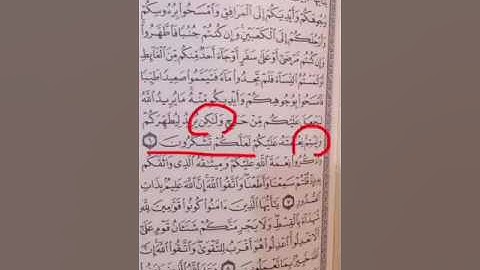 وُجُوهَكُمْ وَأَيْدِيَكُمْ إِلَى الْمَرَافِقِ وَامْسَحُوا بِرُءُوسِكُمْ
وَأَرْجُلَكُمْ إِلَى الْكَعْبَيْنِ وَإِن كُنتُمْ جُنُبًا فَاطَّهَّرُوا
وَإِن كُنتُم مَّرْضَىٰ أَوْ عَلَىٰ سَفَرٍ أَوْ جَاءَ أَحَدٌ مِّنكُم مِّنَ الْغَائِطِ
لَٰمَسْتُمُ النِّسَاءَ فَلَمْ تَجِدُوا مَاءً فَتَيَمَّمُوا صَعِيدًا طَيِّبًا
فَامْسَحُوا بِوُجُوهِكُمْ وَأَيْدِيكُم مِّنْهُ مَا يُرِيدُ اللَّهُ
لِيَجْعَلَ عَلَيْكُم مِّنْ حَرَجٍ وَلَٰكِن يُرِيدُ لِيُطَهِّرَكُمْ
وَلِيُتِمَّ نِعْمَتَهُ عَلَيْكُمْ لَعَلَّكُمْ تَشْكُرُونَ ٦
وَاذْكُرُوا نِعْمَةَ اللَّهِ عَلَيْكُمْ وَمِيثَاقَهُ الَّذِي وَاثَقَكُم
إِذْ قُلْتُمْ سَمِعْنَا وَأَطَعْنَا وَاتَّقُوا اللَّهَ إِنَّ اللَّهَ عَلِيمٌ بِذَاتِ
الصُّدُورِ ٧ يَا أَيُّهَا الَّذِينَ آمَنُوا كُونُوا قَوَّامِينَ لِلَّهِ
شُهَدَاءَ بِالْقِسْطِ وَلَا يَجْرِمَنَّكُمْ شَنَآنُ قَوْمٍ عَلَىٰ
أَلَّا تَعْدِلُوا اعْدِلُوا هُوَ أَقْرَبُ لِلتَّقْوَىٰ وَاتَّقُوا اللَّهَ إِنَّ
اللَّهَ خَبِيرٌ بِمَا تَعْمَلُونَ ٨